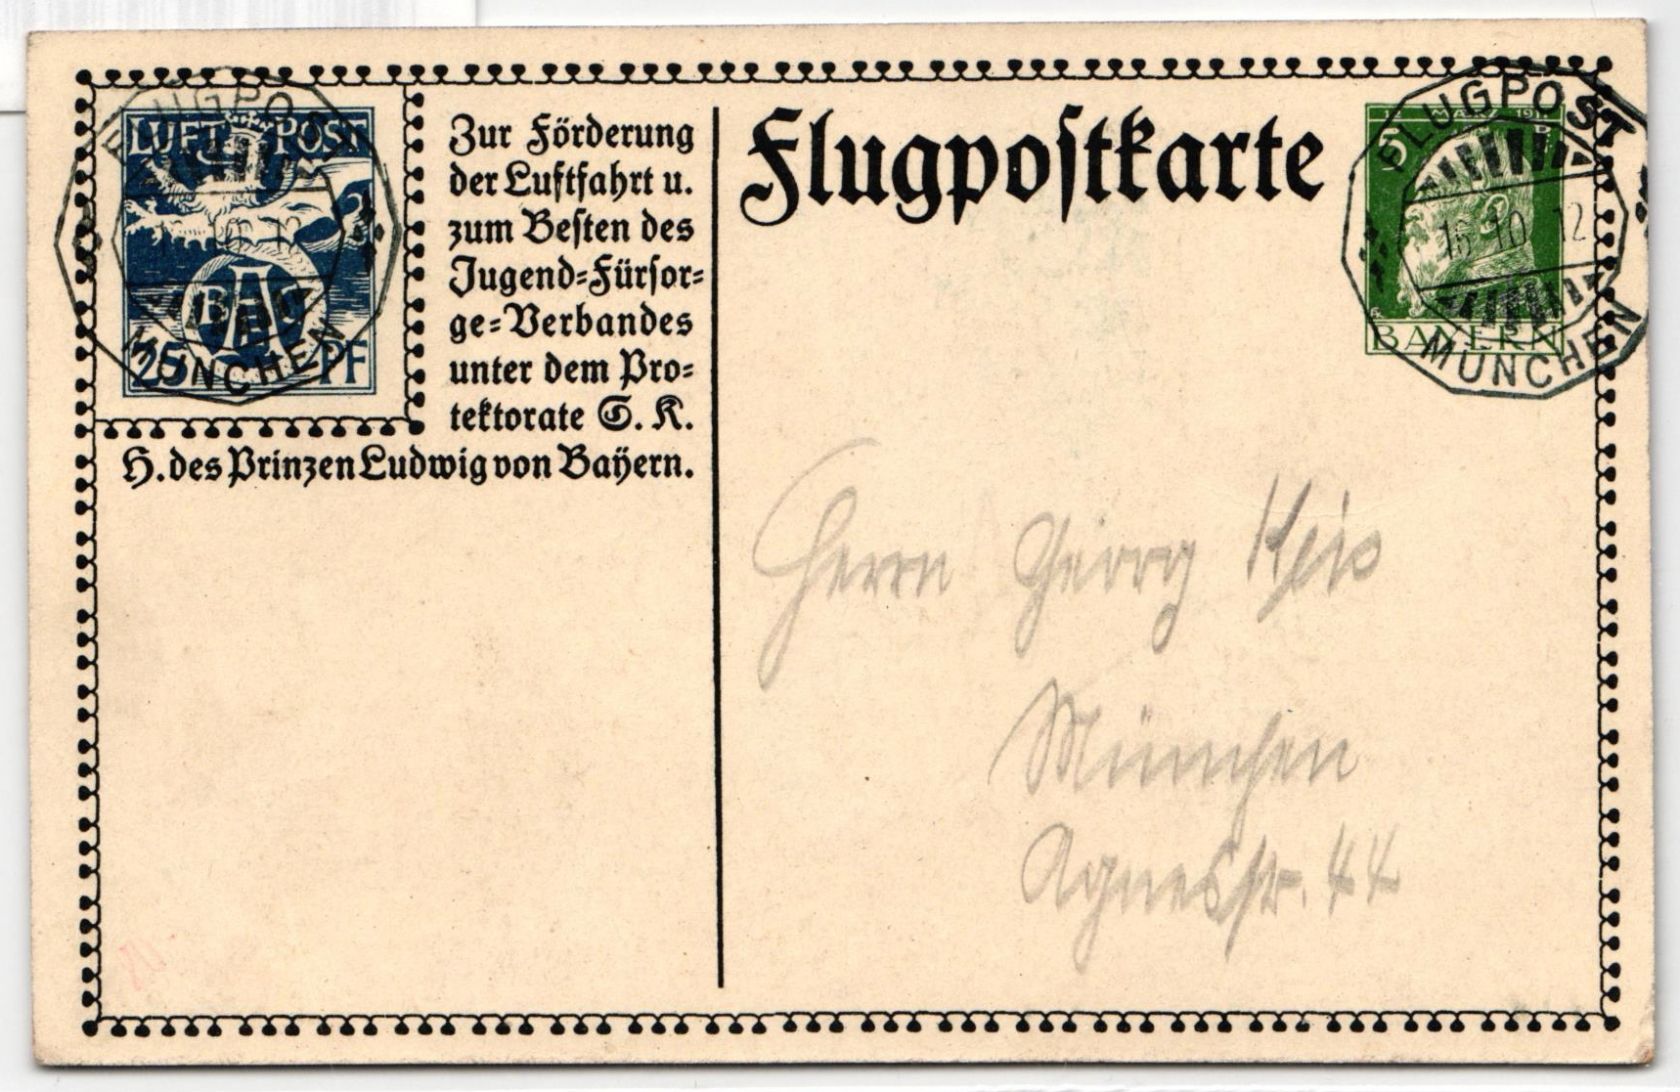 LUFT POST
BAC
25 PF
FLUGPOST
MÜNCHEN
Zur Förderung
der Luftfahrt u.
zum Besten des
Jugend=Fürsor=
ge=Verbandes
unter dem Pro=
tektorate S. K.
H. des Prinzen Ludwig von Baÿern.
Flugpostkarte
5
BAYERN
FLUGPOST
15 10 12
MÜNCHEN
Herrn Georg
München
Agnesstr. 44